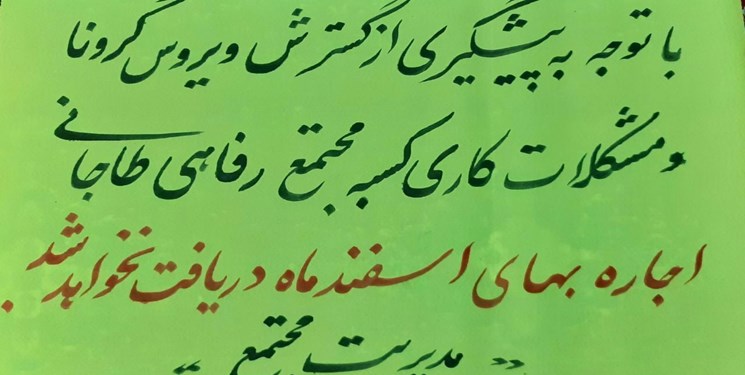 با توجه به پیشگیری از گسترش ویروس کرونا
و مشکلات کاری کسبه مجتمع رفاهی طاجانی
اجاره بهای اسفند ماه دریافت نخواهد شد.
«مدیریت مجتمع»